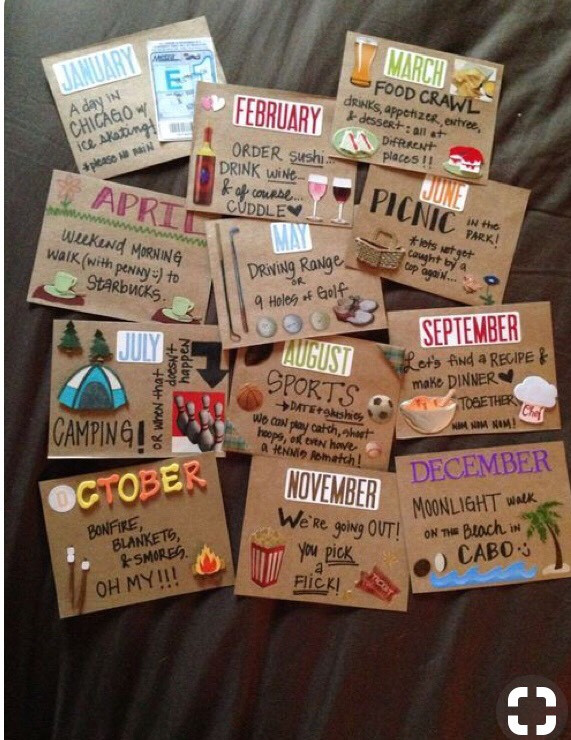 JANUARY
A day in
CHICAGO w/
ice skating!
*please no rain
E
FEBRUARY
ORDER sushi...
DRINK wine...
& of course...
CUDDLE♥
MARCH
FOOD CRAWL
drinks, appetizer, entree,
& dessert: all at
Different
places!!
APRIL
Weekend MORNING
walk (with penny :) to
STARBUCKS.
MAY
DRIVING RANGE
OR
9 Holes of Golf
JUNE
PICNIC IN the
PARK!
*lets not get
caught by a
cop again...
JULY
CAMPING!
OR when that
doesn't
happen
AUGUST
SPORTS
→ DATE + slushies
We can play catch, shoot
hoops, or even have
a tennis rematch!
SEPTEMBER
Let's find a RECIPE &
make DINNER ♥
TOGETHER
NOM NOM NOM!
Chef
OCTOBER
BONFIRE,
BLANKETS,
& SMORES.
OH MY!!!
NOVEMBER
We're going OUT!
you pick
a
FLICK!
TICKET
DECEMBER
MOONLIGHT walk
ON the Beach in
CABO :)